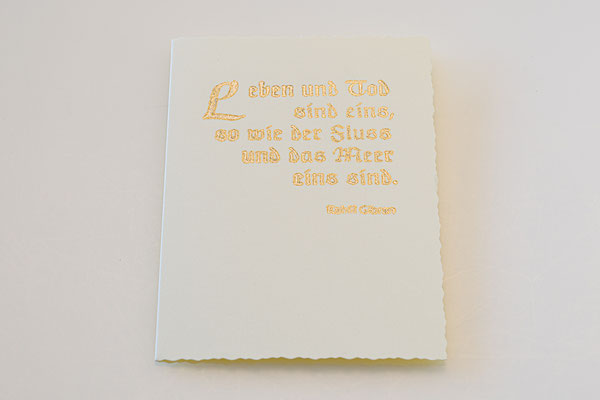 Leben und Tod
sind eins,
so wie der Fluss
und das Meer
eins sind.
Khalil Gibran